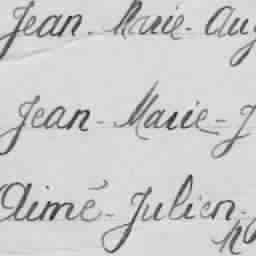 Jean-Marie-Aug
Jean-Marie-J
Aimé-Julien-